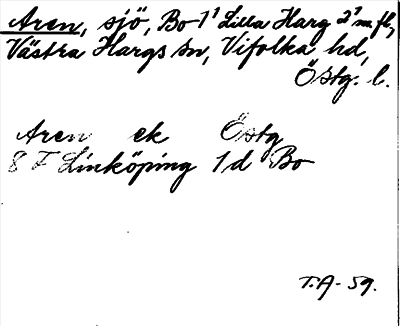 Aren, sjö, Bo 1¹ Lilla Harg 2¹ m.fl,
Västra Hargs sn, Vifolka hd,
Östg. l.
Aren ek Östg
8 F Linköping 1d Bo
T.A-59.